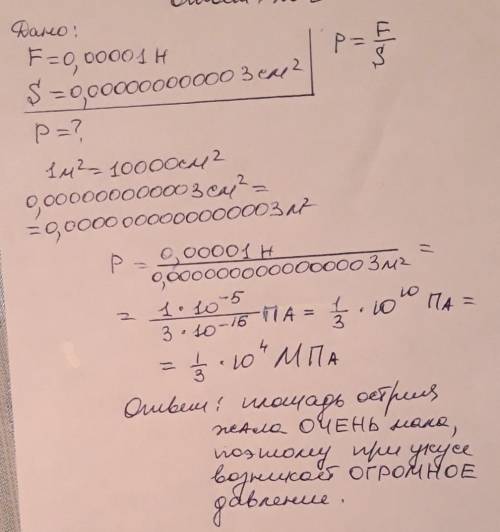 Дано:
F=0,00001 Н
S=0,000000000003 см²
P=F/S
P=?
1м²=10000см²
0,000000000003 см²=
=0,0000000000000003 м²
P=0,00001 Н/0,0000000000000003 м²=
=1·10⁻⁵/3·10⁻¹⁵ ПА=1/3·10¹⁰ ПА=
=1/3·10⁴ МПА
Ответ: площадь острия
жала ОЧЕНЬ мала,
поэтому при укусе
возникает ОГРОМНОЕ
давление.